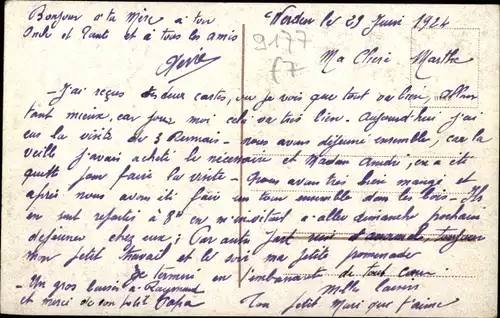 Bonjour a ta Mère à ton
Oncle et Tante et à tous les amis
Verdun le 29 Juin 1924
2177
67
Ma Chère Marthe
- J'ai reçus tes deux cartes, ou je vois que tout va bien, allon
tant mieux, car pour moi cela va très bien. Aujourd'hui j'ai
eus la visite de 3 Remais - nous avons déjeuné ensemble, car la
veille j'avais acheté le nécessaire et Madam André, en a été
quitte pour faire la visite - Nous avons très bien mangé et
après nous avons été faire un tour ensemble dans les bois - Ils
en sont repartis à 8h en m'invitant a aller dimanche prochain
déjeuner chez eux; Par autre
mon petit travail et le soir ma petite promenade
Je termine en t'embrassant de tout cœur
- Un gros baiser à Raymond Mille baisers
et merci de son petit Papa Ton petit Mari que t'aime